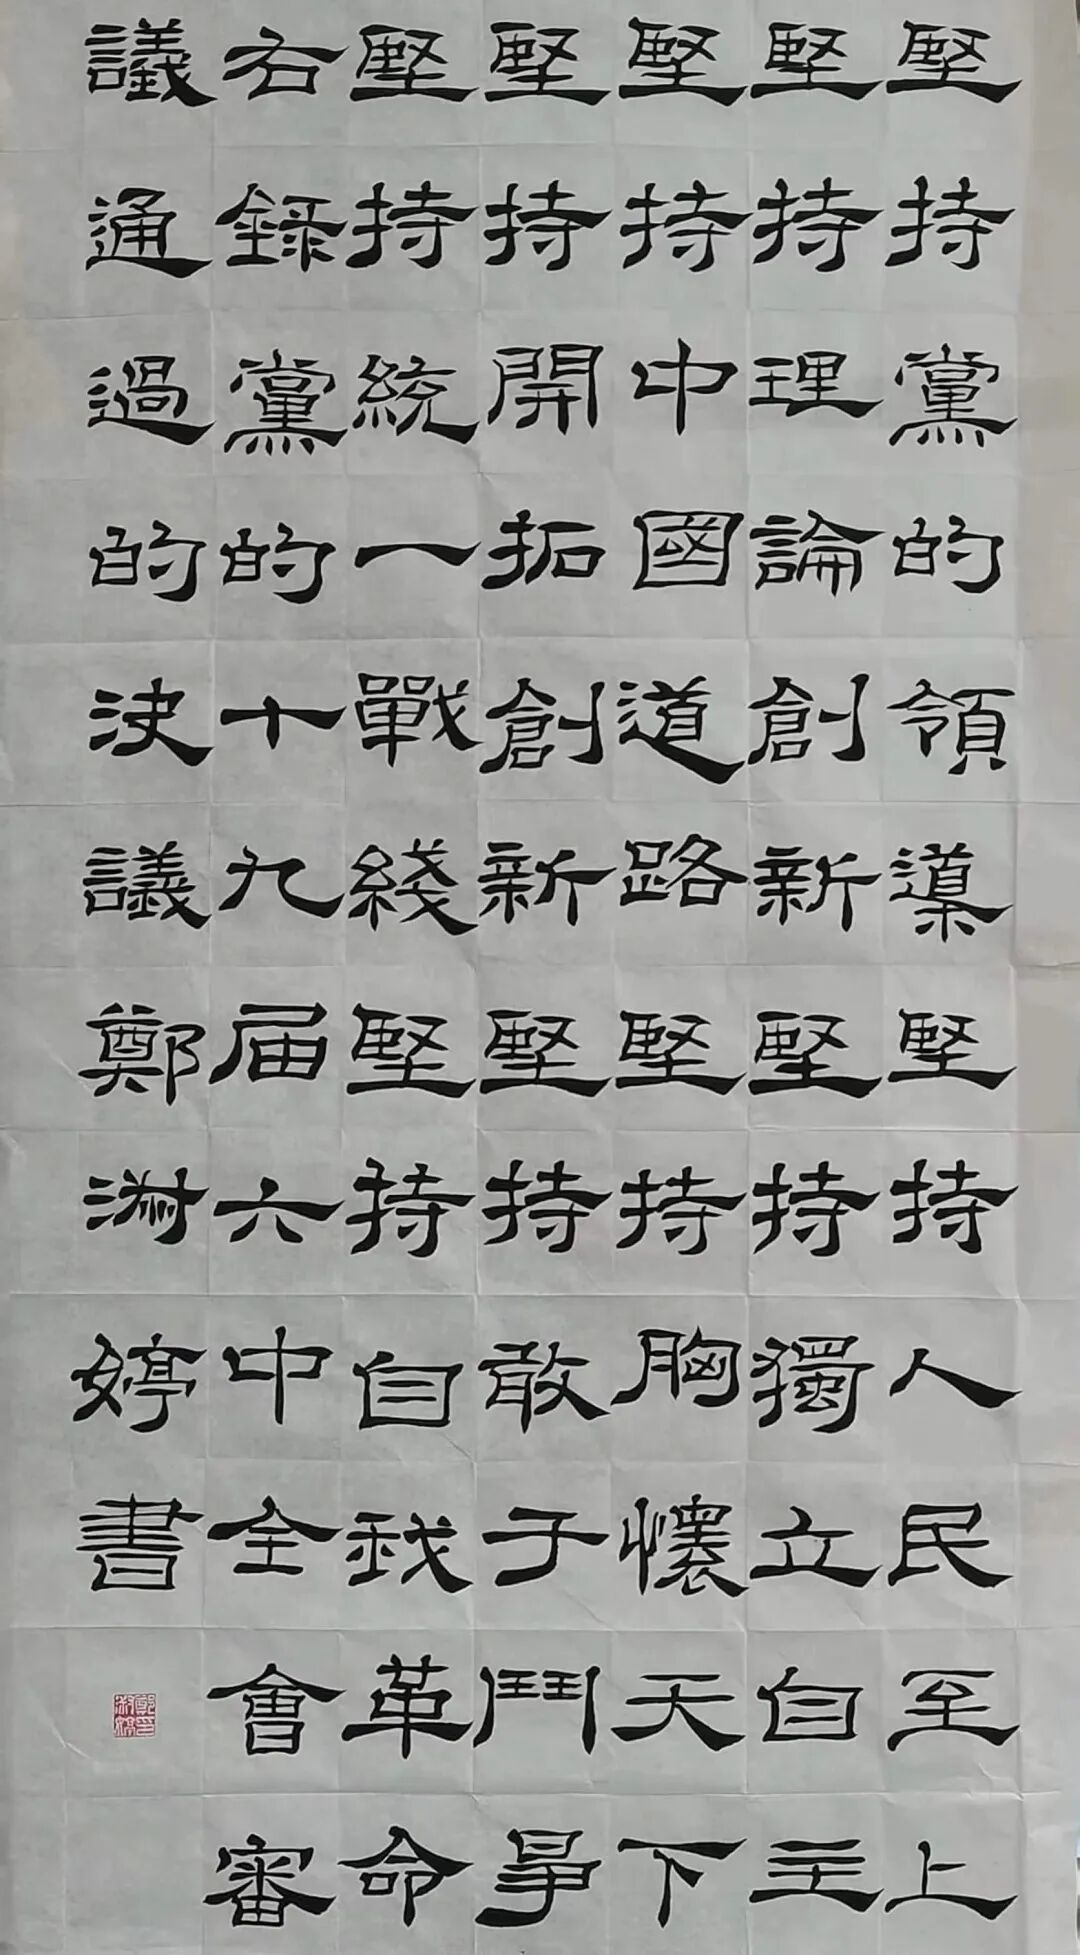 堅持黨的領導堅持人民至上
堅持理論創新堅持獨立自主
堅持中國道路堅持胸懷天下
堅持開拓創新堅持敢于鬥爭
堅持統一戰綫堅持自我革命
右録黨的十九届六中全會審
議通過的決議鄭淑婷書